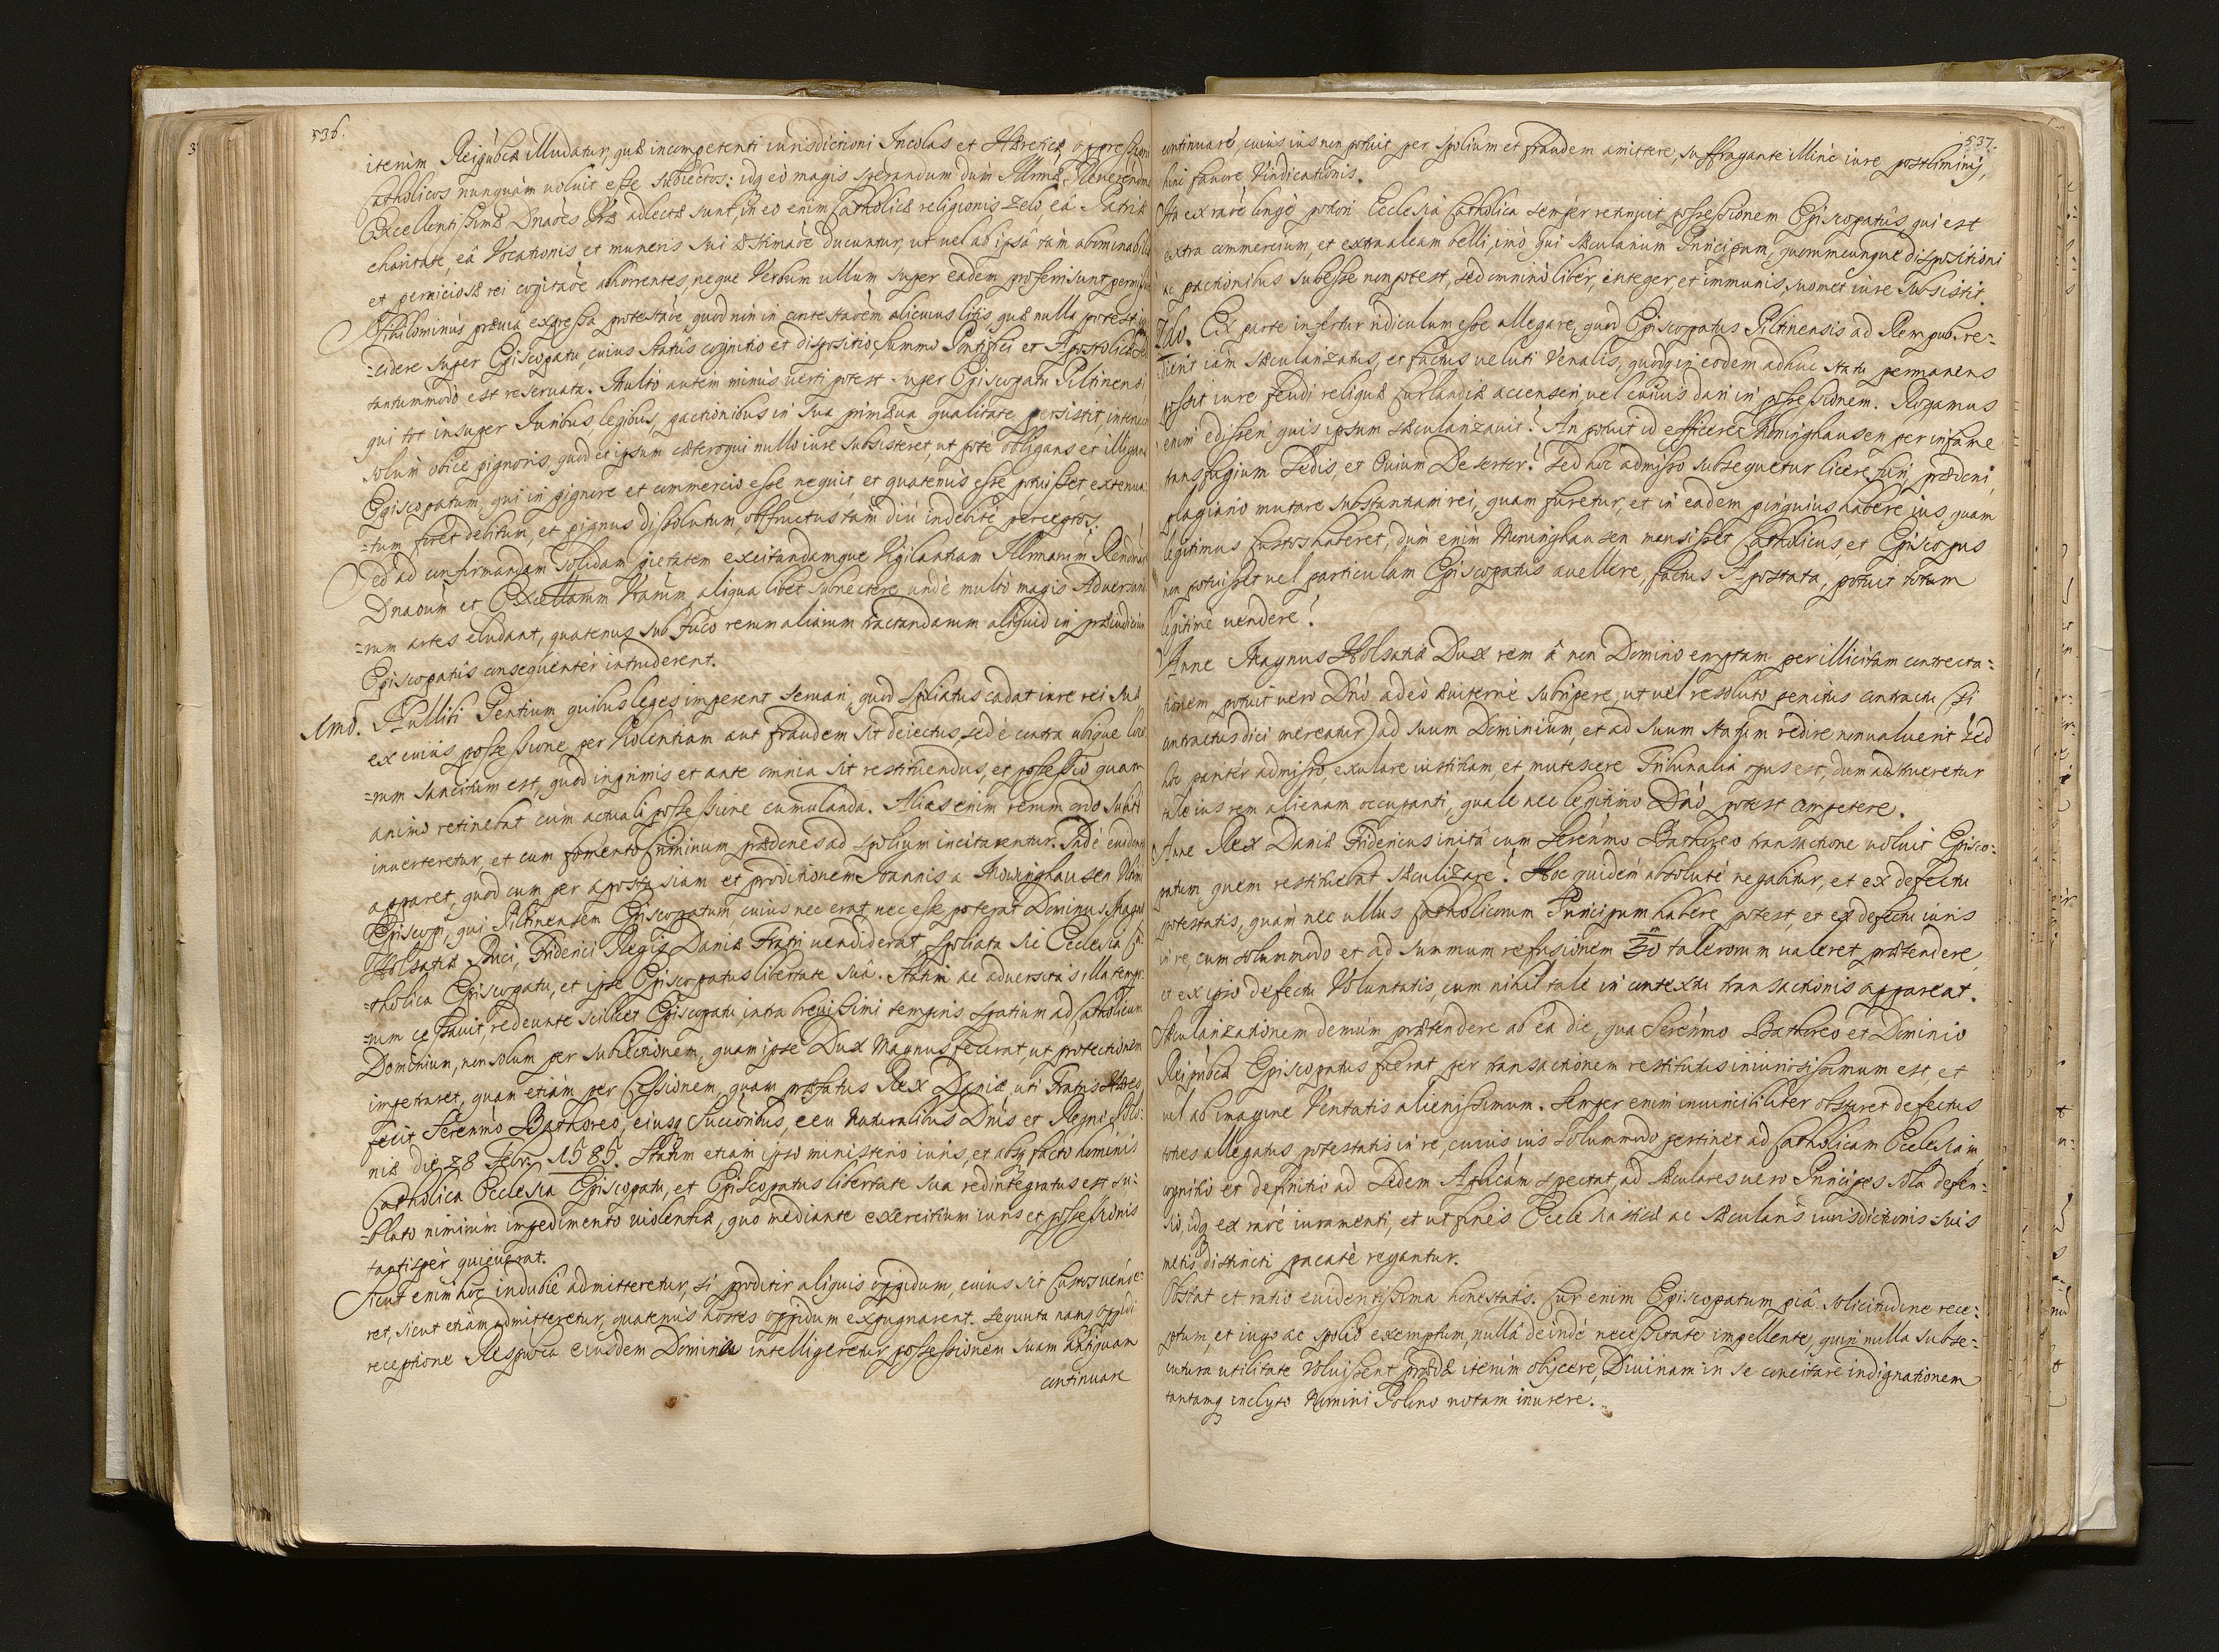 536.
iterùm Reipublicæ illudatur, quæ incompetenti iurisdictioni Incolas et Hæreticæ oppressioni
Catholicos nunquàm voluit esse subiectos: idq eò magis sperandum dum Illrmæ, Reverendmæ
Excellentissimæ Dnaões Vræ adlectæ sunt, in eo enim Catholicæ religionis zelo, eâ Patriæ
charitate, eâ Vocationis et muneris sui æstimaõe ducuntur, ut vel ab ipsâ tàm abominabilis
et perniciosæ rei cogitaõe abhorrentes, neque Verbum ullum super eadem proferri sunt permissuræ
Nihilominùs præuia expressa protestaõe, quod nun in contestaõem alicuius litis quæ nulla potest in
=cidere super Episcopatu, cuius statûs cognitio et dispositio, Summo Pontifici et Apostolicæ Sedi
tantummodò est reseruata. Multo autèm minùs verti potest super Episcopatu Piltinensi
qui tot insuper Iuribus, legibus, pactionibus in sua primæua qualitate persistit, intenue
solùm obice pignoris, quod et ipsum cæteroqui nullo iure subsisteret, ut pote obligans et illigans
Episcopatum, qui in pignore et commercio esse nequit, et quatenùs esse potuisset, extenua=
=tum foret debitum, et pignus dissolutum, ob fructus tàm diù indebitè perceptos.
Sed ad confirmandam solidam pietatem excitandamque Vigilantiam Illrmarum Rendmarum
Dnaoum et Excellmarum Vrarum aliqua libet subnectere, undè multò magis Aduersario=
=rum artes eludant, quatenus sub fuco rerum aliarum tractandarum aliquid in præiudicium
Episcopatûs consequentèr intruderent.
1mo. Nulli Gentium quibus leges imperent seruari, quod spoliatus cadat iure rei suæ
ex cuius possessione per Violentiam aut fraudem sit deiectus, sed è contra ubique loco=
=rum sancitum est, quod inprimis et ante omnia sit restituendus, et possessio quam
animo retinebat cùm actuali possessione cumulanda. Alias enim rerum ordo subitò
inuerteretur, et cum fomento Criminum prædones ad spolium incitarentur. Indè euidentèr
apparet, quod cum per apostasiam et proditionem Ioannis a Moninghausen Ultimi
Episcopi, qui Piltinensem Episcopatum, cuius nec erat nec esse poterat Dominus, Magno
Holsatiæ Duci, Friderici Regis Daniæ Fratri vendiderat, spoliata sic Ecclesia Ca=
=tholica Episcopatu, et ipse Episcopatus libertate suâ. Statim ac aduersitas illa tempo=
=rum cessauit, redeunte scilicet Episcopatu intra breuissimi temporis spatium ad Catholicum
Dominium, non solum per subiectionem, quam ipse Dux Magnus fecerat, ut protectionem
impetraret, quam etiàm per Cessionem, quam præfatus Rex Daniæ, uti Fratris Hæres,
fecit Serenmò Bathoreo, eiusq Succoribus, ceu naturalibus Dnis et Regni Polo=
niæ die 28 Febr. 1585. Statim etiam ipso ministerio iuris, et absq facto hominis
Catholica Ecclesia Episcopatu, et Episcopatus libertate sua redintegratus est su=
=blato nimirùm impedimento violentiæ, quo mediante exercitium iuris et possessionis
tantispèr quieuerat.
Sicut enim hoc indubiè admitteretur, si proditor aliquis oppidum, cuius sit Custos vende=
ret, sicut etiàm admitteretur, quatenùs hostes oppidum expugnarent. sequuta nanq oppidi
receptione Respublca eiusdem Domina intelligeretur possessionem suam antiquam
continuare
537.
continuare, cuius ius non potuit per spolium et fraudem amittere, suffragante illinc iure postliminij,
hinc fauore Vindicationis.
Ita ex raõe longè potiori Ecclesia Catholica semper retinuit possessionem Episcopatûs, qui est
extra commercium, et extra aleam belli, imò qui sæcularium Principum, quorumcunque dispositioni
ac pactionibus subesse non potest, sed omninò liber, integer, et immunis, suomet iure subsistit.
2do. Ex parte infertur ridiculum esse allegare, quod Episcopatus Piltinensis ad Rempub. re=
=dierit iàm sæcularizatus, et factus veluti Venalis, quodq in eodem adhuc statu permanens
possit iure feudi reliquæ Curlandiæ accenseri, vel cuiuis dari in possessionem. Rogamus
enim edisseri, quis ipsum sæcularizauit? An potuit id efficere Moninghausen per infame
transfugium Sedis, et Ouium Desertor? Sed hoc admisso subsequetur licere furi, prædoni,
plagiario mutare substantiam rei, quam furetur, et in eadem pinguius habere ius, quam
legitimus Custos haberet, dùm enim Moninghausen mansisset Catholicus, et Episcopus
non potuisset vel particulam Episcopatûs auellere, factus Apostata, potuit totum
legitimè vendere?
Anne Magnus Holsatiæ Dux rem â non Domino emptam per illicitam contrecta=
tionem potuit vero Dnò adeò æuiternè subripere, ut vel resoluto penitus contractu (si
contractus dici mereatur) ad suum Dominium, et ad suum statum redire non valuerit? Sed
hoc paritèr admisso, exulare iustitiam, et mutescere Tribunalia opus est, dum adstrueretur
tale ius rem alienam occupanti, quale nec legitimo Dnò potest competere.
Anne Rex Daniæ Fridericus inita cum Serenmo Bathoreo transactione voluit Episco=
patum quem restituebat sæculizare? Hoc quidem absolutè negabitur, et ex defectu
potestatis, quàm nec ullus Catholicorum Principum habere potest, et ex defectu iuris
in re, cum solummodo et ad summum refusionem 30 m talerorum valeret prætendere,
et ex ipso defectu Voluntatis, cum nihil tale in contextu transactionis appareat.
Sæcularizationem demùm prætendere ab ea die, qua Serenmo Bathoreo et Dominio
Reipublcæ Episcopatus fuerat per transactionem restitutus iniuriosissimum est, et
vel ab imagine Veritatis alienissimum. Semper enim inuincibiliter obstaret defectus
toties allegatus potestatis in re, cuius ius solummodo pertinet ad Catholicam Ecclesiam,
cognitio et definitio ad Sedem Aplicàm spectat, ad sæculares vero Principes sola defen=
sio, idq ex raõe iuramenti, et ut fines Ecclesiasticæ ac sæcularis iurisdictionis suis
metis distincti pacatè regantur.
Obstat et ratio euidentissima honestatis. Cur enim Episcopatum piâ solicitudine rece=
ptum, et iugo ac spolio exemptum, nullâ deindè necessitate impellente, quin nulla subse=
cutura utilitate voluissent prædæ iterùm obijcere, Diuinam in se concitare indignationem
tantamq inclyto Nomini Polono notam inurere.